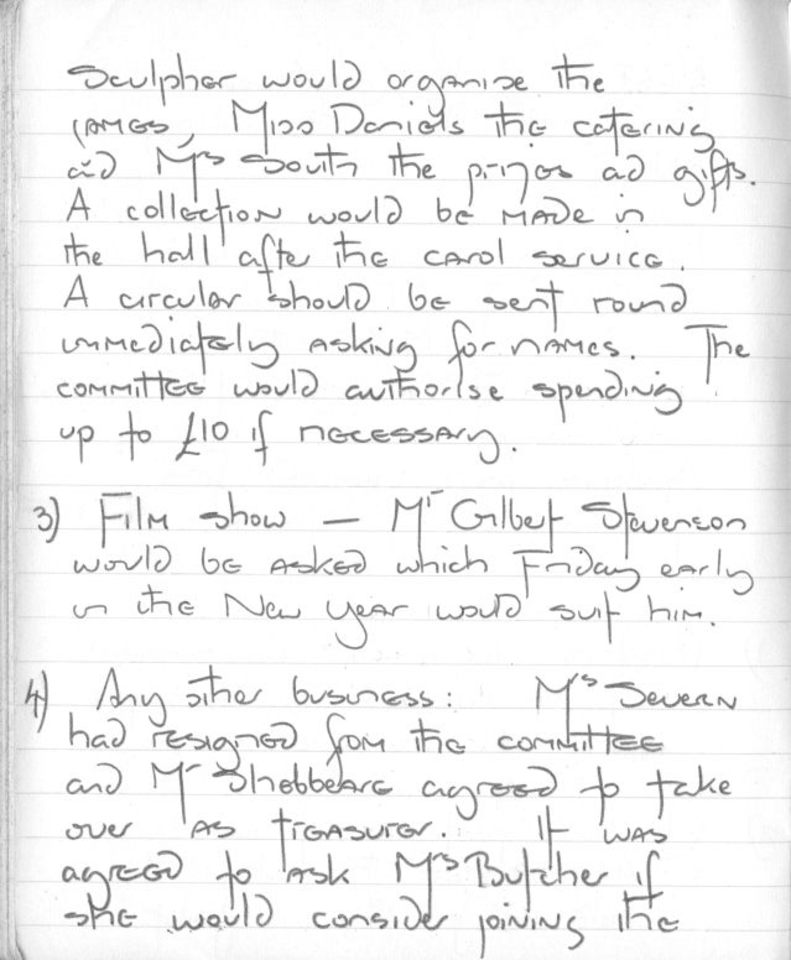 Sculpher would organise the
games, Miss Daniels the catering
and Mrs South the prizes ad gifts.
A collection would be made in
the hall after the carol service.
A circular should be sent round
immediately asking for names. The
committee would authorise spending
up to £10 if necessary.
3) Film show — Mr Gilbert Stevenson
would be asked which Friday early
in the New Year would suit him.
4) Any other business: Mrs Severn
had resigned from the committee
and Mr Shebbeare agreed to take
over as treasurer. It was
agreed to ask Mrs Butcher if
she would consider joining the